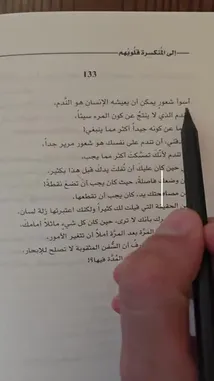 إلى المُنكسرة قلوبُهم
133
أسوأ شعور يمكن أن يعيشه الإنسان هو النَّدم،
الذي لا ينتجُ عن كون المرء سيئاً،
عن كونه جيداً أكثر مما ينبغي!
أن تندم على نفسك هو شعور مرير جداً،
تندم لأنّك تمسّكت أكثر مما يجب،
حين كان عليك أن تُفلت يدكَ قبل هذا بكثير،
فاصلة، حيث كان يجب أن تضعَ نقطة!
يد، كان يجب أن تقطعها،
قيلت لك كثيراً ولكنك اعتبرتها زلّة لسان،
بأنك لا ترى، حين كان كل شيء ماثلاً أمامك،
المرّة بعد المرّة أملاً أن تتغير الأمور،
أن السُّفن المثقوبة لا تصلح للإبحار،
فيها؟!